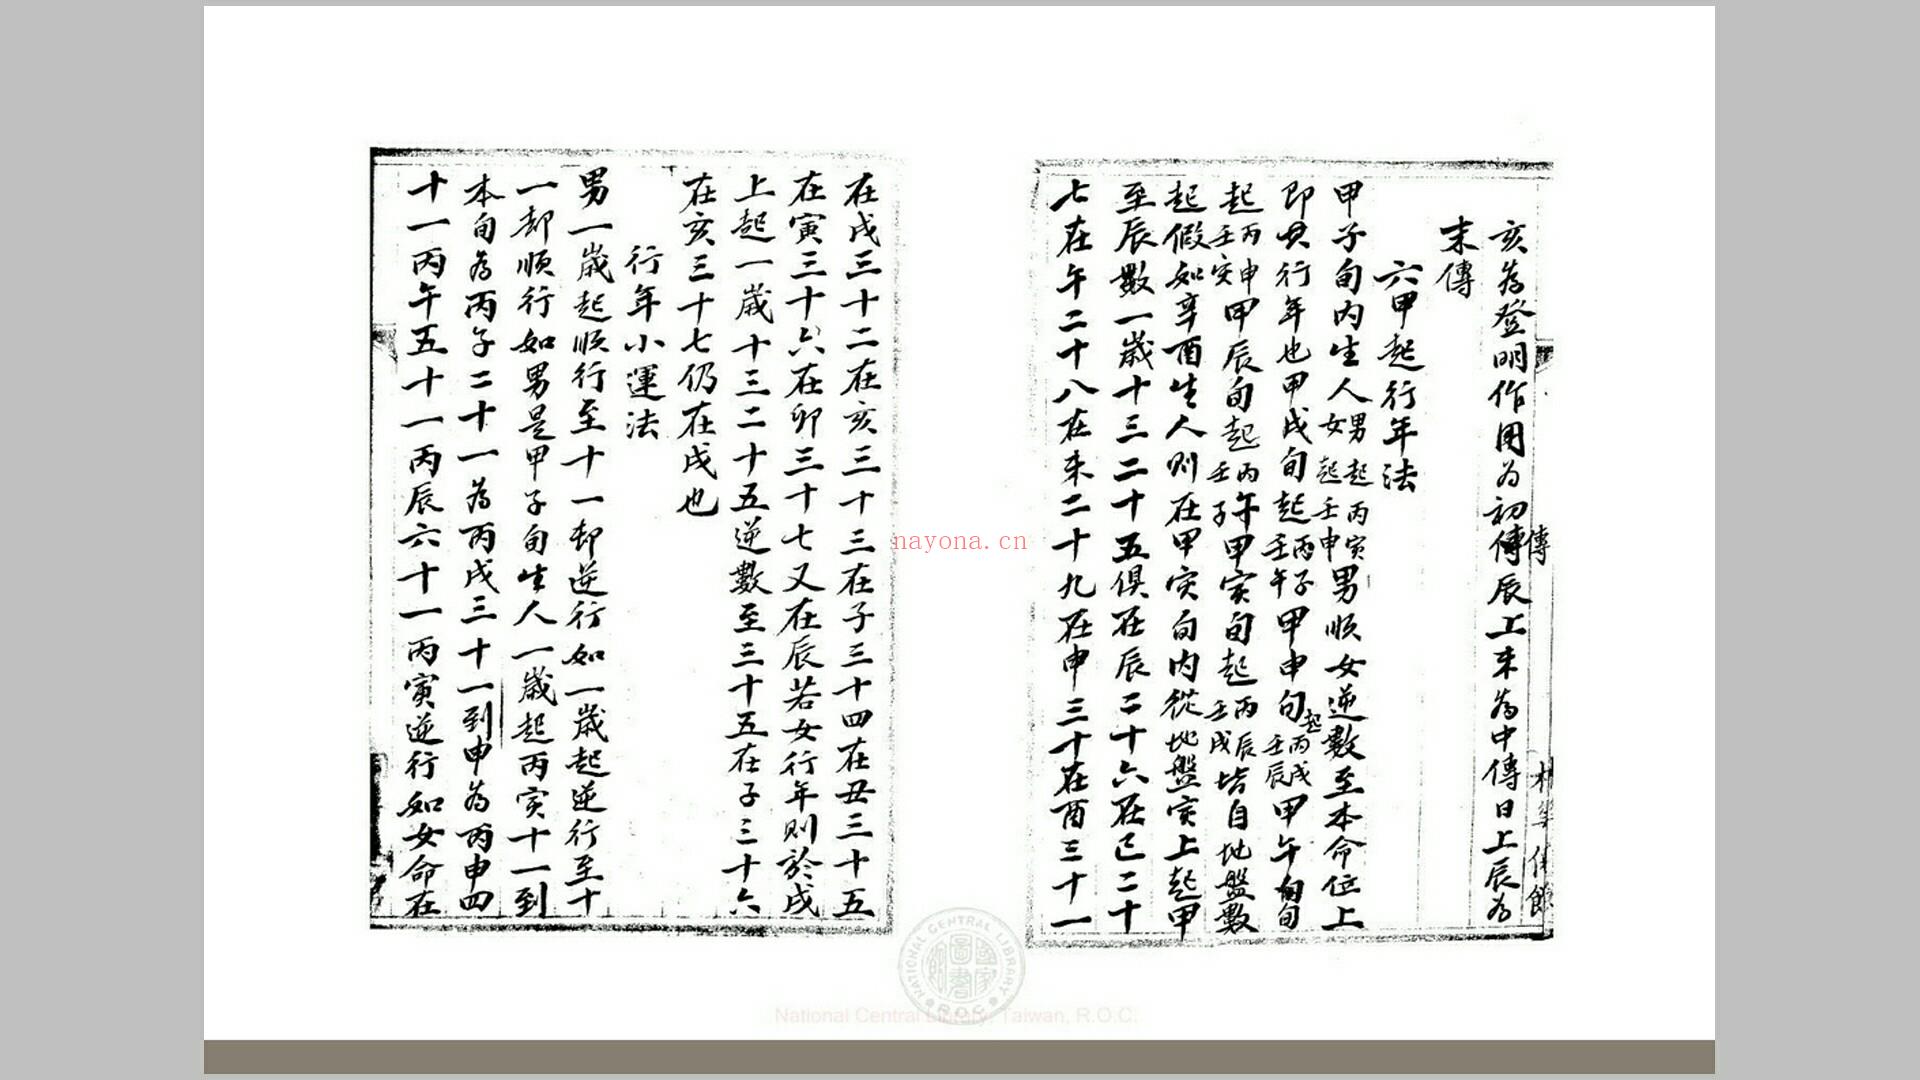 亥為登明作用為初傳辰上未為中傳日上辰為
末傳
六甲起行年法
甲子旬內生人男起丙寅女起壬申男順女逆數至本命位上
即其行年也甲戌旬起丙子壬午甲申旬起丙戌壬辰甲午旬
起丙申壬寅甲辰旬起丙午壬子甲寅旬起丙辰壬戌皆自地盤數
起假如辛酉生人則在甲寅旬內從地盤寅上起甲
至辰數一歲十三二十五俱在辰二十六在巳二十
七在午二十八在未二十九在申三十在酉三十一
在戌三十二在亥三十三在子三十四在丑三十五
在寅三十六在卯三十七又在辰若女行年則於戌
上起一歲十三二十五逆數至三十五在子三十六
在亥三十七仍在戌也
行年小運法
男一歲起順行至十一却逆行如一歲起逆行至十
一却順行如男是甲子旬生人一歲起丙寅十一到
本旬為丙子二十一為丙戌三十一到申為丙申四
十一丙午五十一丙辰六十一丙寅逆行如女命在
傳
nayona.cn
NATIONAL CENTRAL LIBRARY R.O.C.
國家圖書館
National Central Library, Taiwan, R.O.C.